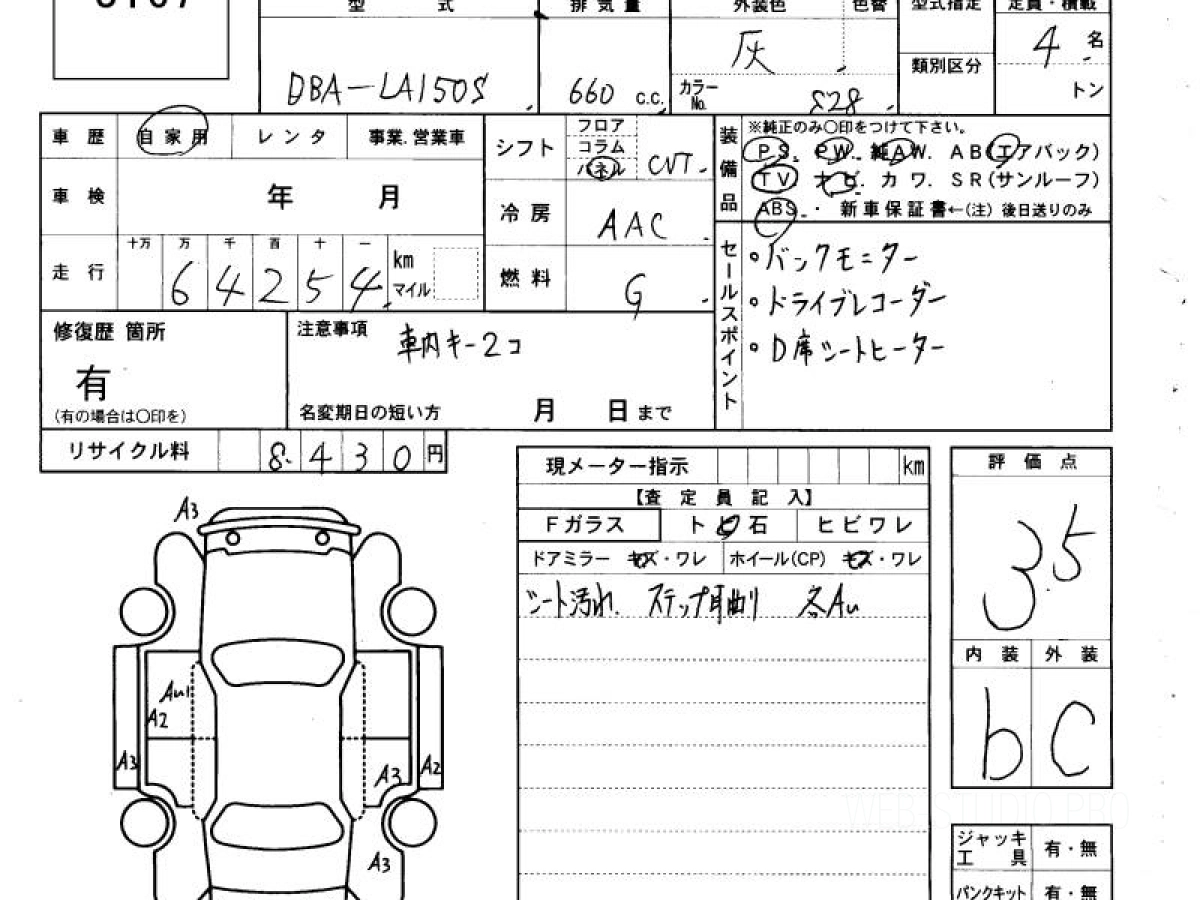 型 式 排気量 外装色 色替 型式指定 定員・積載
DBA-LA150S 660 c.c. 灰 4 名
カラーNo. S28 類別区分 トン
車歴 自家用 レンタ 事業.営業車
車検 年 月
走行 十万 万 千 百 十 一
6 4 2 5 4 km マイル
シフト フロア コラム パネル CVT
冷房 AAC
燃料 G
装備品 ※純正のみ〇印をつけて下さい。
PS. PW. 純AW. AB(エアバック)
TV ナビ. カワ. SR(サンルーフ)
ABS. ・ 新車保証書←(注) 後日送りのみ
セールスポイント
・バックモニター
・ドライブレコーダー
・D席シートヒーター
修復歴 箇所
有
(有の場合は〇印を)
注意事項 車内キー2コ
名変期日の短い方 月 日まで
リサイクル料 8.430円
現メーター指示 km
【査定員記入】
Fガラス ト ビ 石 ヒビワレ
ドアミラー キズ・ワレ ホイール(CP) キズ・ワレ
シート汚れ. ステップ耳曲り 各Au
評価点
3.5
内装 外装
b C
ジャッキ工具 有・無
パンクキット 有・無
A3
Au1
A2
A3
A3
A2
A3
WEB STUDIO PRO